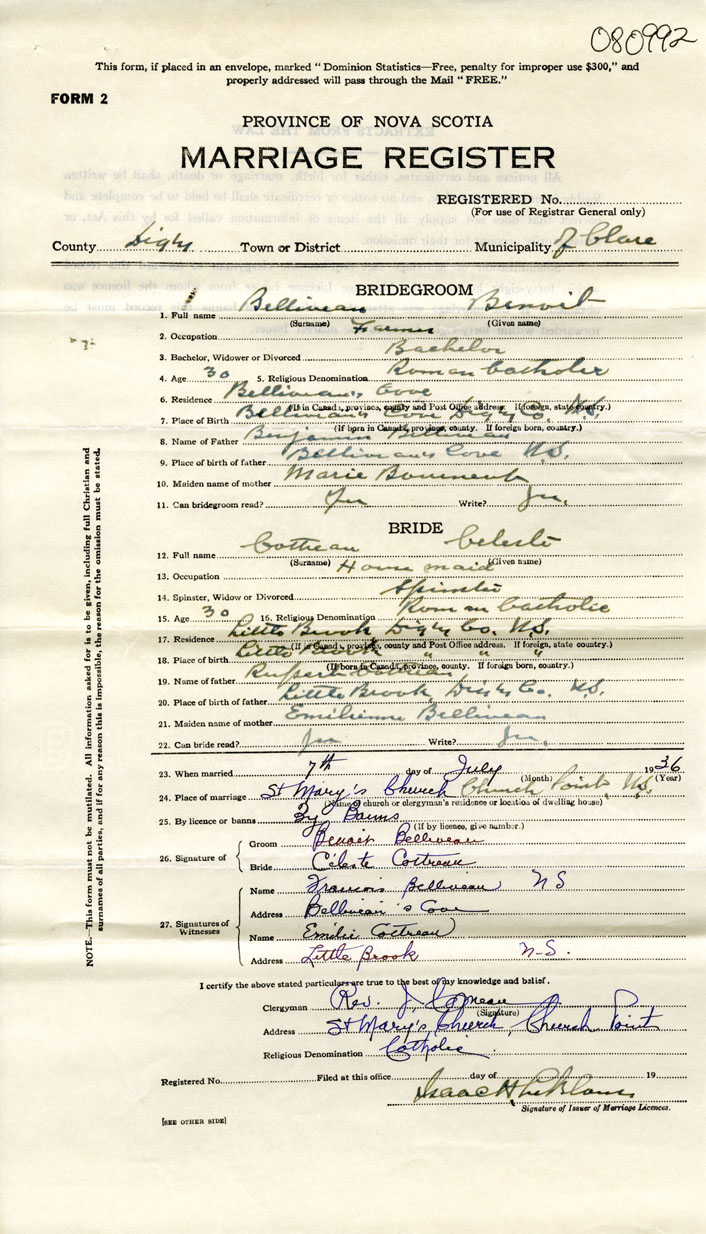 080992
This form, if placed in an envelope, marked "Dominion Statistics—Free, penalty for improper use $300," and
properly addressed will pass through the Mail "FREE."
FORM 2
PROVINCE OF NOVA SCOTIA
MARRIAGE REGISTER
REGISTERED No.
(For use of Registrar General only)
County Digby Town or District Municipality of Clare
BRIDEGROOM
1. Full name Belliveau Benoit
(Surname) (Given name)
2. Occupation Farmer
3. Bachelor, Widower or Divorced Bachelor
4. Age 30 5. Religious Denomination Roman Catholic
6. Residence Belliveau's Cove
(If in Canada, province, county and Post Office address. If foreign, state country.)
7. Place of Birth Belliveau's Cove Digby Co. N.S.
(If born in Canada, province, county. If foreign born, country.)
8. Name of Father Benjamin Belliveau
9. Place of birth of father Belliveau's Cove N.S.
10. Maiden name of mother Marie
11. Can bridegroom read? Yes Write? Yes.
BRIDE
12. Full name Cottreau Celeste
(Surname) (Given name)
13. Occupation House maid
14. Spinster, Widow or Divorced Spinster
15. Age 30 16. Religious Denomination Roman Catholic
17. Residence Little Brook Digby Co. N.S.
(If in Canada, province, county and Post Office address. If foreign, state country.)
18. Place of birth Little Brook " " "
(If born in Canada, province, county. If foreign born, country.)
19. Name of father Cottreau
20. Place of birth of father Little Brook Digby Co. N.S.
21. Maiden name of mother Emilienne Belliveau
22. Can bride read? Yes Write? Yes.
23. When married 7th day of July 1936
(Month) (Year)
24. Place of marriage St Mary's Church Church Point N.S.
(Name of church or clergyman's residence or location of dwelling house)
25. By licence or banns By Banns
(If by licence, give number.)
26. Signature of
Groom Benoit Belliveau
Bride Céleste Cottreau
27. Signatures of Witnesses
Name Francois Belliveau N S
Address Belliveau's Cove
Name Emilie Cottreau
Address Little Brook N-S.
I certify the above stated particulars are true to the best of my knowledge and belief.
Clergyman Rev. J. Comeau
(Signature)
Address St Mary's Church, Church Point
Religious Denomination Catholic
Registered No. Filed at this office day of 19
Isaac H
Signature of Issuer of Marriage Licences.
[SEE OTHER SIDE]
NOTE.—This form must not be mutilated. All information asked for is to be given, including full Christian and
surnames of all parties, and if for any reason this is impossible, the reason for the omission must be stated.